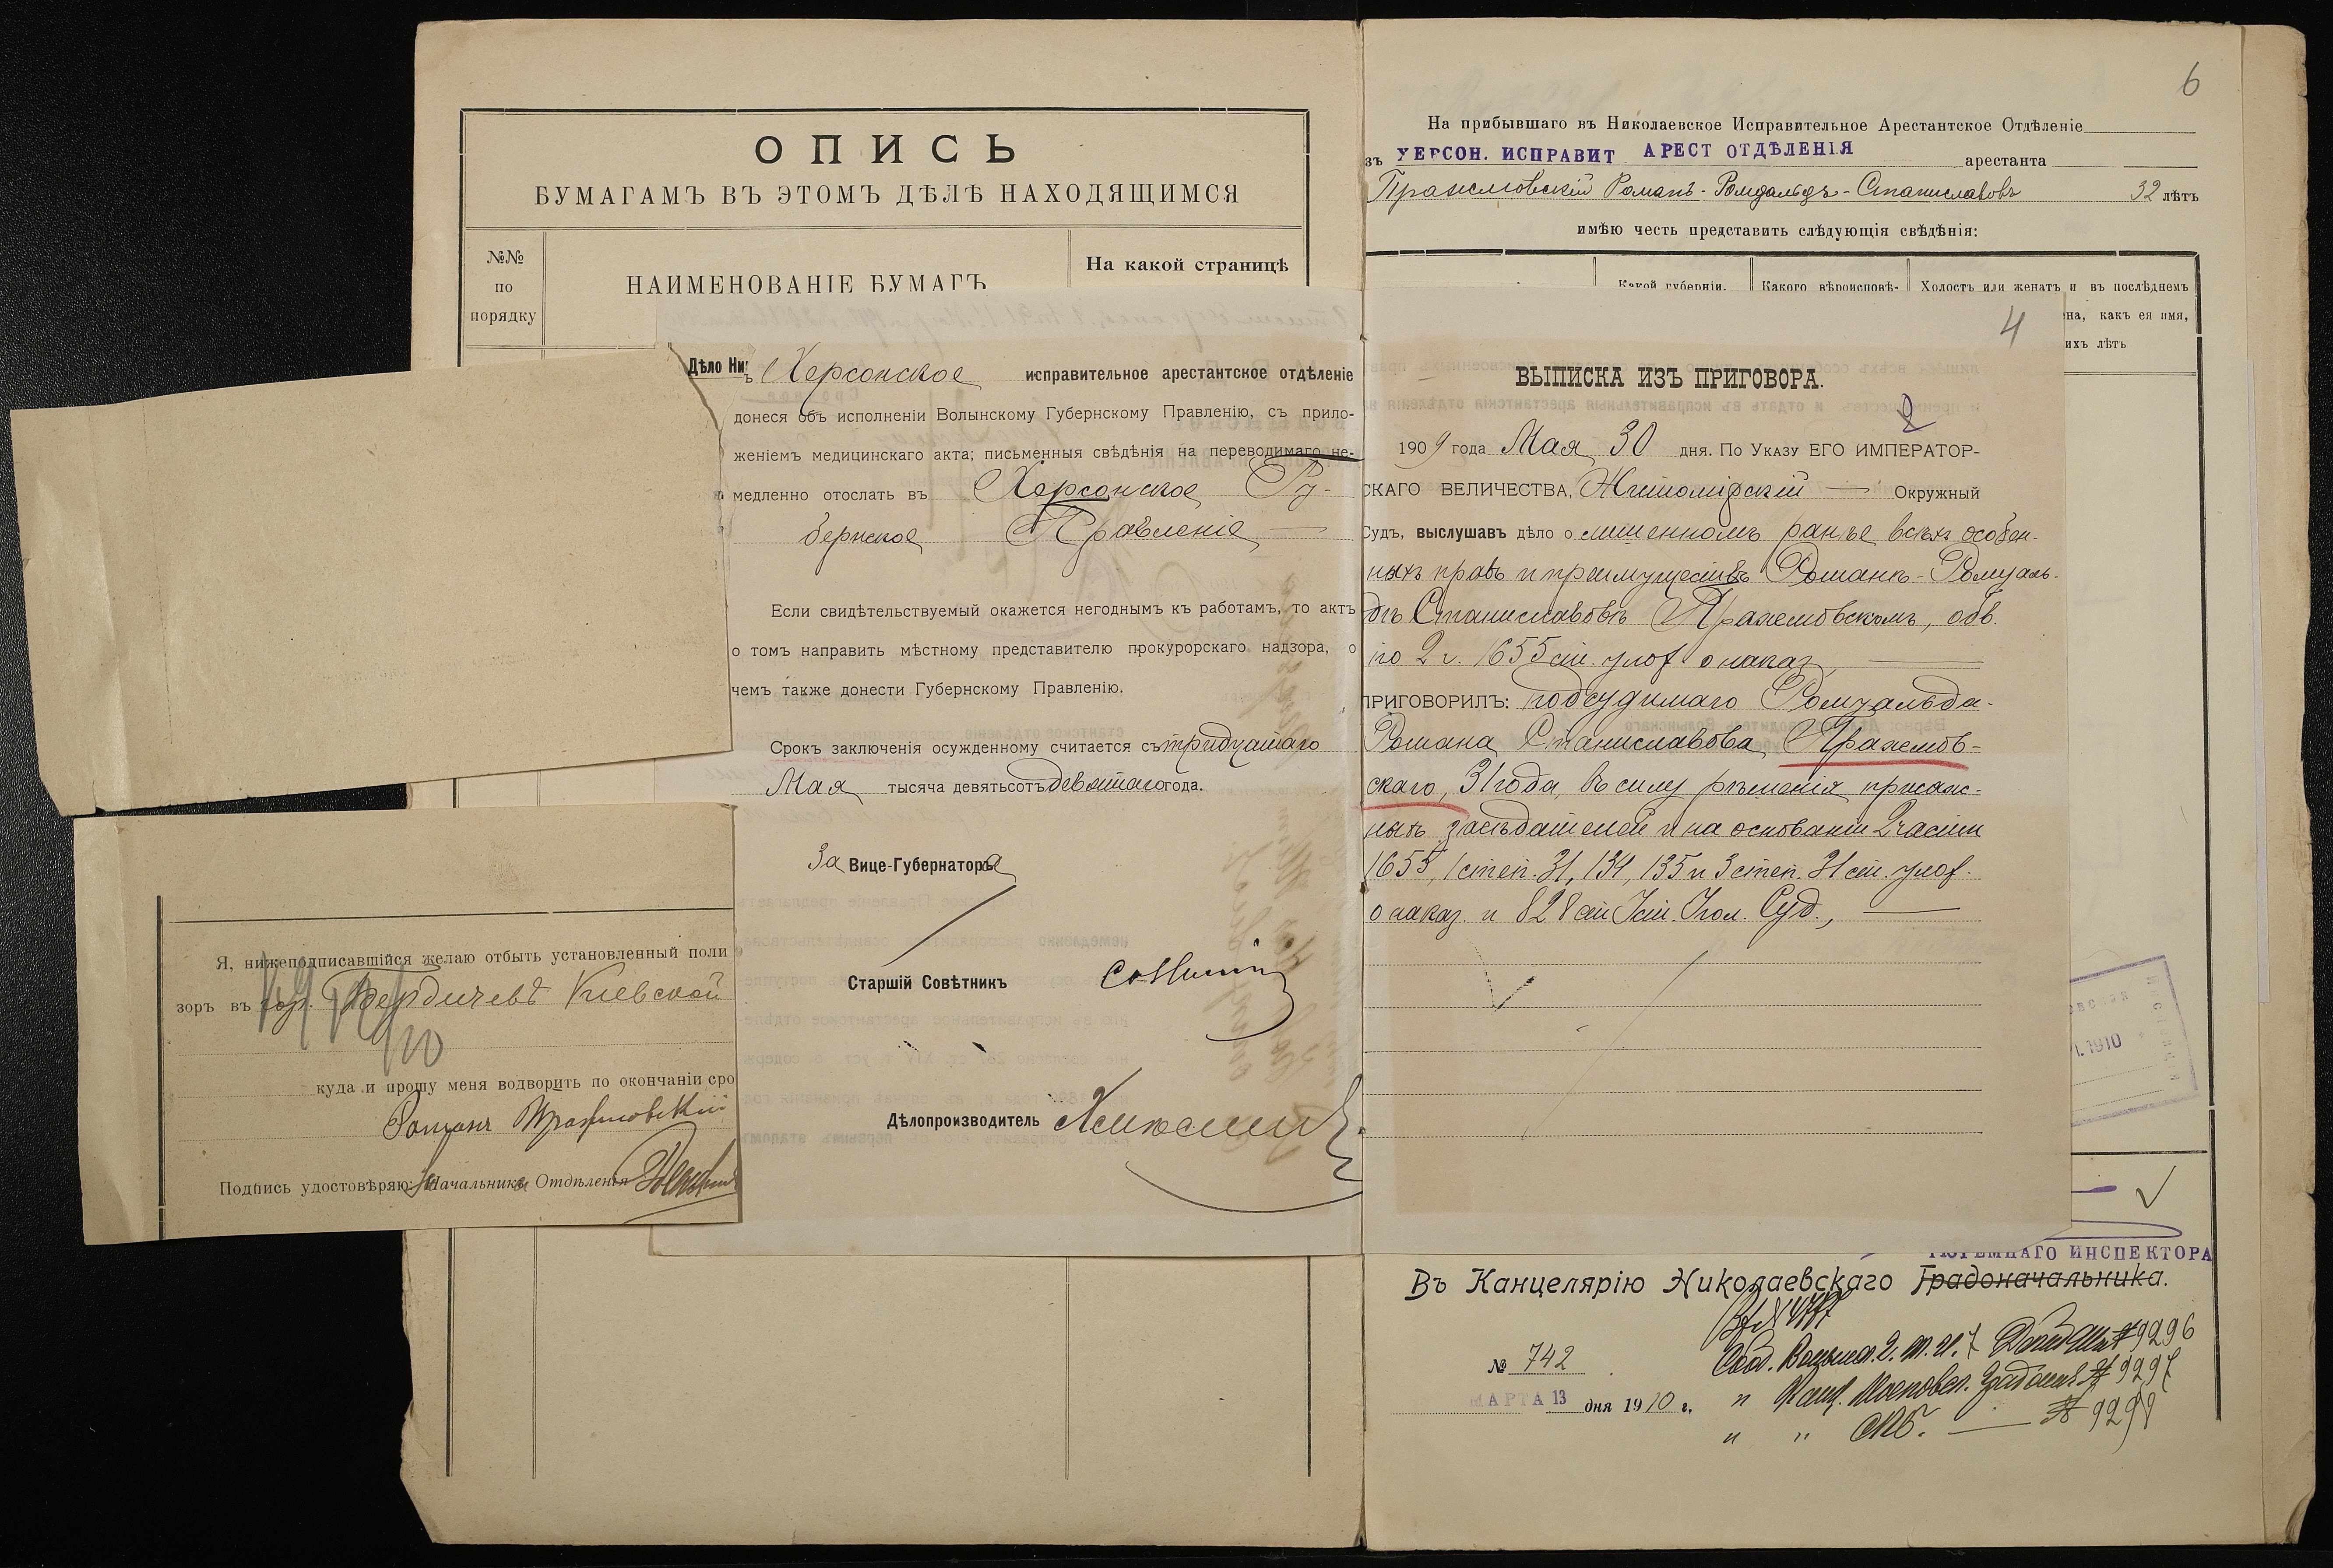 ОПИСЬ
БУМАГАМЪ ВЪ ЭТОМЪ ДѢЛѢ НАХОДЯЩИМСЯ
№№
по
порядку
НАИМЕНОВАНІЕ БУМАГЪ
На какой страницѣ
Дѣло
Херсонское исправительное арестантское отдѣленіе
донеся объ исполненіи Волынскому Губернскому Правленію, съ прило-
женіемъ медицинскаго акта; письменныя свѣдѣнія на переводимаго не-
медленно отослать въ Херсонское Гу-
бернское Правленіе
Если свидѣтельствуемый окажется негоднымъ къ работамъ, то актъ
о томъ направить мѣстному представителю прокурорскаго надзора, о
чемъ также донести Губернскому Правленію.
Срокъ заключенія осужденному считается съ тридцатаго
Мая тысяча девятьсотъ девятаго года.
За Вице-Губернатора
Старшій Совѣтникъ
Дѣлопроизводитель
Я, нижеподписавшійся желаю отбыть установленный поли
зоръ въ гор. Бердичевѣ Кіевской
куда и прошу меня водворить по окончаніи сро
Романъ Пражмовскій
Подпись удостовѣряю: За Начальника Отдѣленія
6
На прибывшаго въ Николаевское Исправительное Арестантское Отдѣленіе
зъ ХЕРСОН. ИСПРАВИТ АРЕСТ ОТДѢЛЕНІЯ арестанта
Пражмовскій Романъ-Ромуальдъ-Станиславовъ 32 лѣтъ
имѣю честь представить слѣдующія свѣдѣнія:
Какой губерніи, Какого вѣроисповѣ- Холостъ или женатъ и въ послѣднемъ
на, какъ ея имя,
ихъ лѣтъ
4
ВЫПИСКА ИЗЪ ПРИГОВОРА.
2
1909 года Мая 30 дня. По Указу ЕГО ИМПЕРАТОР-
СКАГО ВЕЛИЧЕСТВА, Житомірскій Окружный
Судъ, выслушавъ дѣло о лишенномъ ранѣе всѣхъ особен-
ныхъ правъ и преимуществъ Романѣ-Ромуаль-
дѣ Станиславовѣ Пражмовскомъ, обв.
по 2 ч. 1655 ст. улож. о наказ.
ПРИГОВОРИЛЪ: подсудимаго Ромуальда-
Романа Станиславова Пражмов-
скаго, 31 года, въ силу рѣшенія присяж-
ныхъ засѣдателей и на основаніи 2 части
1655, 1 степ. 31, 134, 135 и 3 степ. 31 ст. улож.
о наказ. и 828 ст. Уст. Угол. Суд.,
1910
ТЮРЕМНАГО ИНСПЕКТОРА
Въ Канцелярію Николаевскаго Градоначальника.
№ 742
№ 9296
МАРТА 13 дня 1910 г.
№ 9297
" " СПБ. № 9298